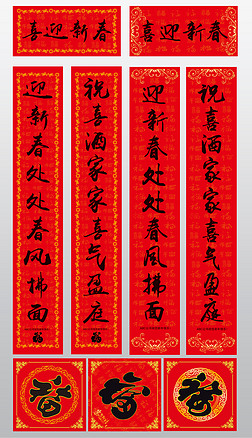 喜迎新春
喜迎新春
迎新春处处春风拂面
祝喜酒家家喜气盈庭
迎新春处处春风拂面
祝喜酒家家喜气盈庭
福